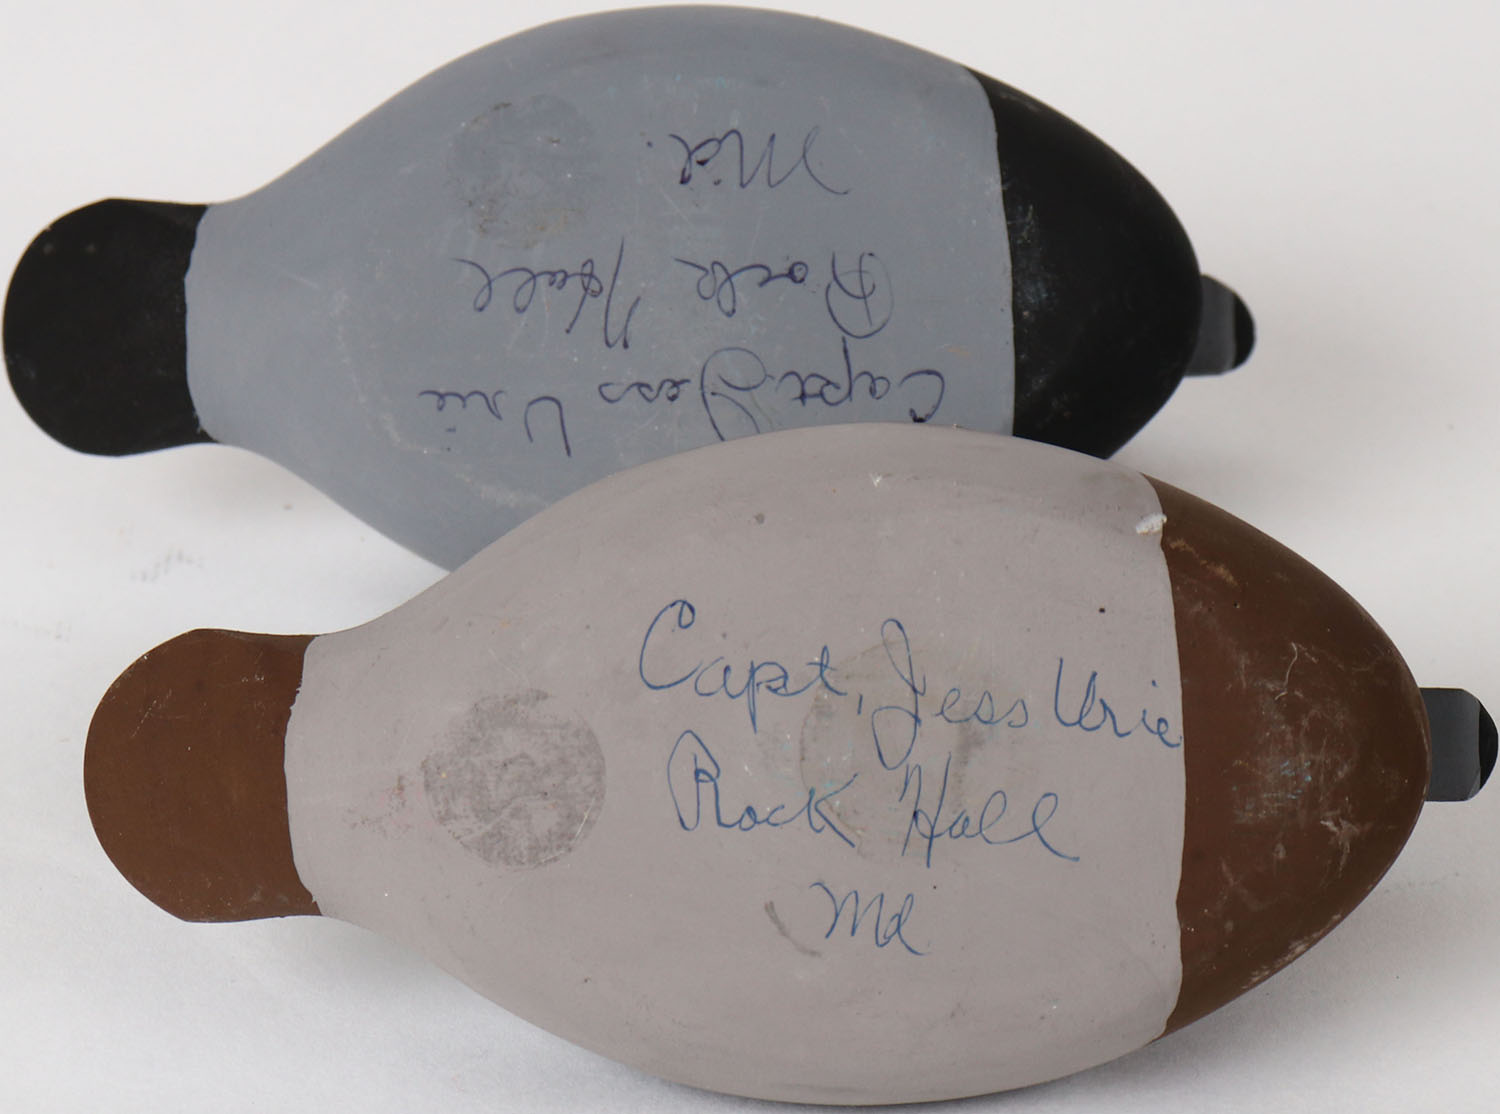 Capt. Jess Urie
Rock Hall
Md.
Capt, Jess Urie
Rock Hall
Md